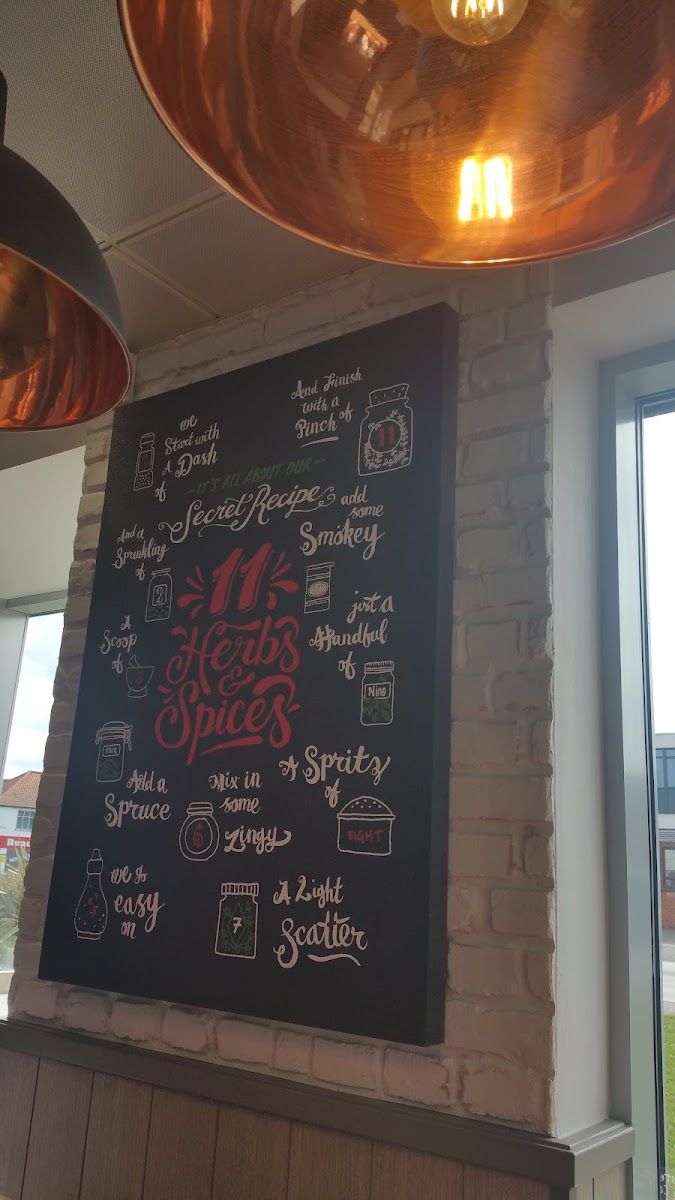 we
Start with
A Dash
of
And Finish
with a
Pinch of
11
— IT'S ALL ABOUT OUR —
Secret Recipe
And a
Sprinkling
of
2
add
some
Smokey
11
Herbs
&
Spices
A
Scoop
of
3
just a
Handful
of
Nine
Four
Add a
Spruce
Mix in
some
Zingy
6
A Spritz
of
EIGHT
5
we go
easy
on
7
A Light
Scatter
Rea